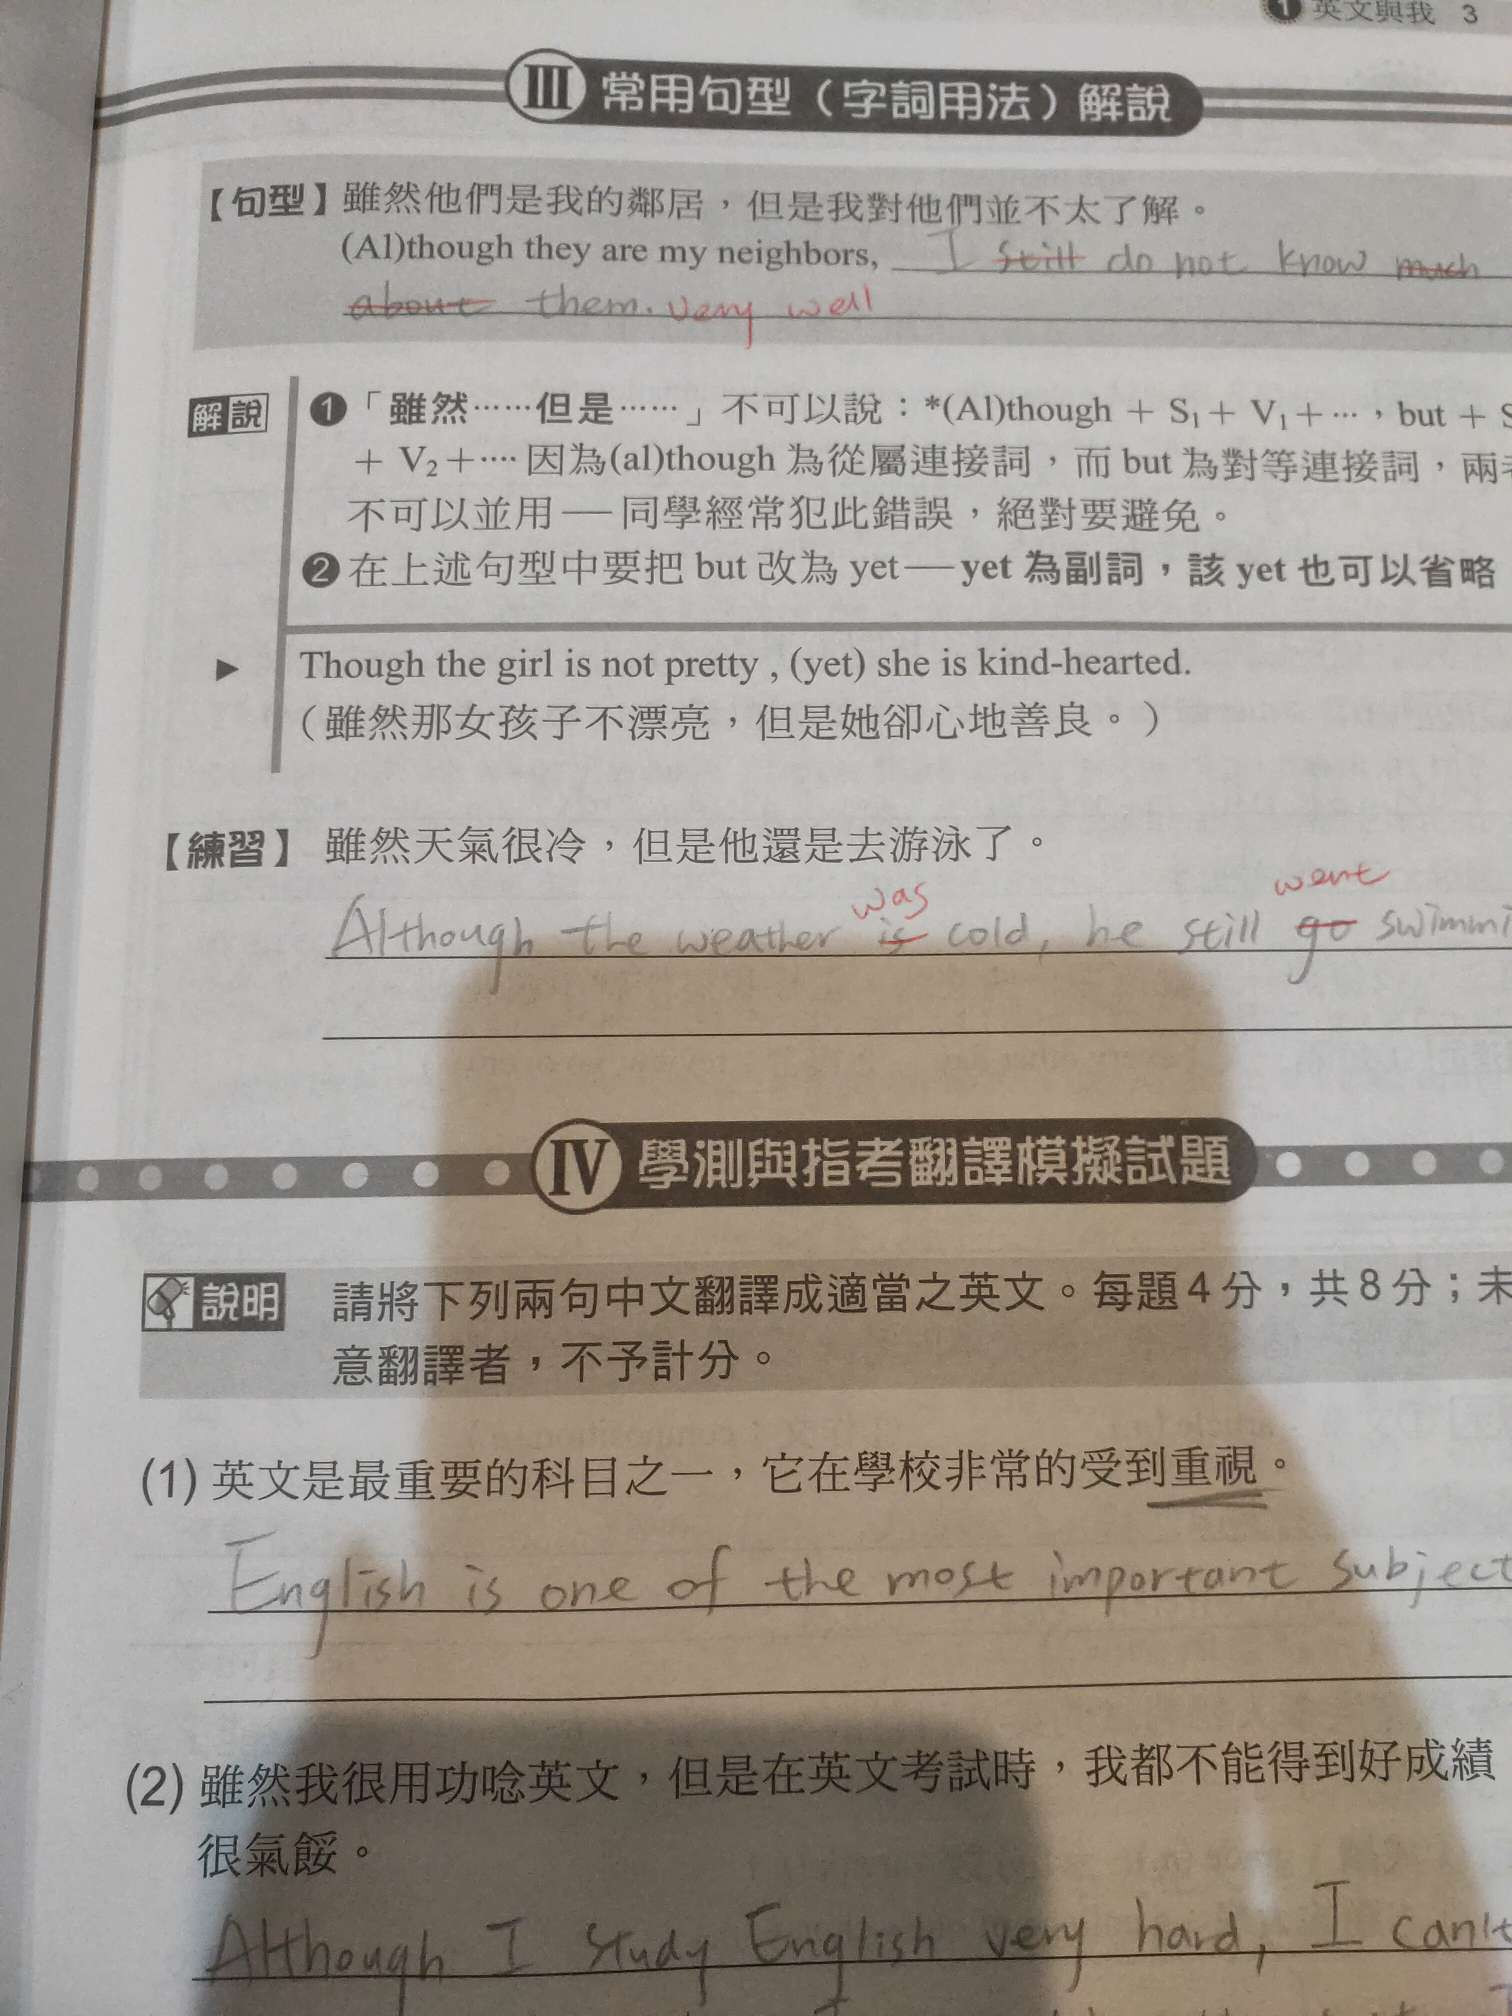 ❶ 英文與我 3
III 常用句型（字詞用法）解說
【句型】雖然他們是我的鄰居，但是我對他們並不太了解。
(Al)though they are my neighbors, I still do not know much
about them. very well
解說 ❶「雖然……但是……」不可以說：*(Al)though + S₁ + V₁ + …，but + S
+ V₂ + …. 因為(al)though 為從屬連接詞，而 but 為對等連接詞，兩者
不可以並用 — 同學經常犯此錯誤，絕對要避免。
❷ 在上述句型中要把 but 改為 yet — yet 為副詞，該 yet 也可以省略
▶ Though the girl is not pretty , (yet) she is kind-hearted.
（雖然那女孩子不漂亮，但是她卻心地善良。）
【練習】雖然天氣很冷，但是他還是去游泳了。
was went
Although the weather is cold, he still go swimmi
IV 學測與指考翻譯模擬試題
說明 請將下列兩句中文翻譯成適當之英文。每題4分，共8分；未
意翻譯者，不予計分。
(1) 英文是最重要的科目之一，它在學校非常的受到重視。
English is one of the most important subject
(2) 雖然我很用功唸英文，但是在英文考試時，我都不能得到好成績
很氣餒。
Although I study English very hard, I can't